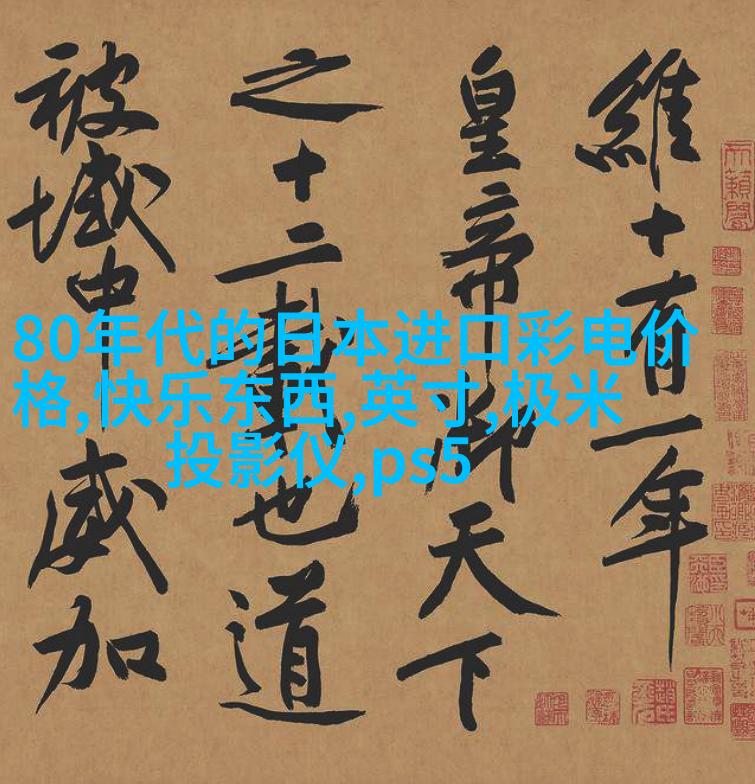 維十有一年
皇帝御天下
之十二載也道
被域中威加
80年代的日本进口彩电价
格,快乐东西,英寸,极米
投影仪,ps5